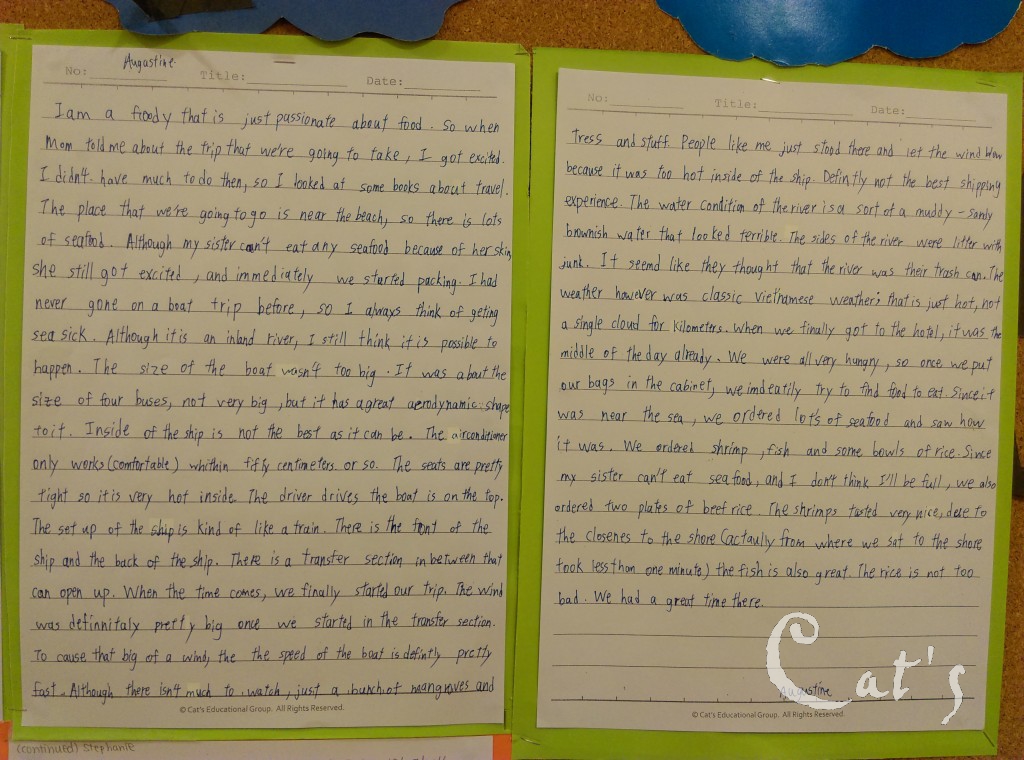 Augustine
No: Title: Date:
I am a foody that is just passionate about food. So when
Mom told me about the trip that we're going to take, I got excited.
I didn't have much to do then, so I looked at some books about travel.
The place that we're going to go is near the beach, so there is lots
of seafood. Although my sister can't eat any seafood because of her skin,
she still got excited, and immediately we started packing. I had
never gone on a boat trip before, so I always think of geting
sea sick. Although it is an inland river, I still think it is possible to
happen. The size of the boat wasn't too big. It was about the
size of four buses, not very big, but it has a great aerodynamic shape
to it. Inside of the ship is not the best as it can be. The airconditioner
only works (comfortable) whithin fifty centimeters or so. The seats are pretty
tight so it is very hot inside. The driver drives the boat is on the top.
The set up of the ship is kind of like a train. There is the front of the
ship and the back of the ship. There is a transfer section in between that
can open up. When the time comes, we finally started our trip. The wind
was definnitaly pretty big once we started in the transfer section.
To cause that big of a wind, the the speed of the boat is defintly pretty
fast. Although there isn't much to watch, just a bunch of mangraves and
© Cat's Educational Group. All Rights Reserved.
(continued) Stephanie
No: Title: Date:
Tress and stuff. People like me just stood there and let the wind blow
because it was too hot inside of the ship. Defintly not the best shipping
experience. The water condition of the river is a sort of a muddy-sandy
brownish water that looked terrible. The sides of the river were litter with
junk. It seemd like they thought that the river was their trash can. The
weather however was classic Viethamese weather; that is just hot, not
a single cloud for kilometers. When we finally got to the hotel, it was the
middle of the day already. We were all very hungry, so once we put
our bags in the cabinet, we imdeatily try to find food to eat. Since it
was near the sea, we ordered lots of seafood and saw how
it was. We ordered shrimp, fish and some bowls of rice. Since
my sister can't eat seafood, and I don't think I'll be full, we also
ordered two plates of beef rice. The shrimps tasted very nice, due to
the closenes to the shore (actaully from where we sat to the shore
took less than one minute) the fish is also great. The rice is not too
bad. We had a great time there.
Augustine
© Cat's Educational Group. All Rights Reserved.
Cat's